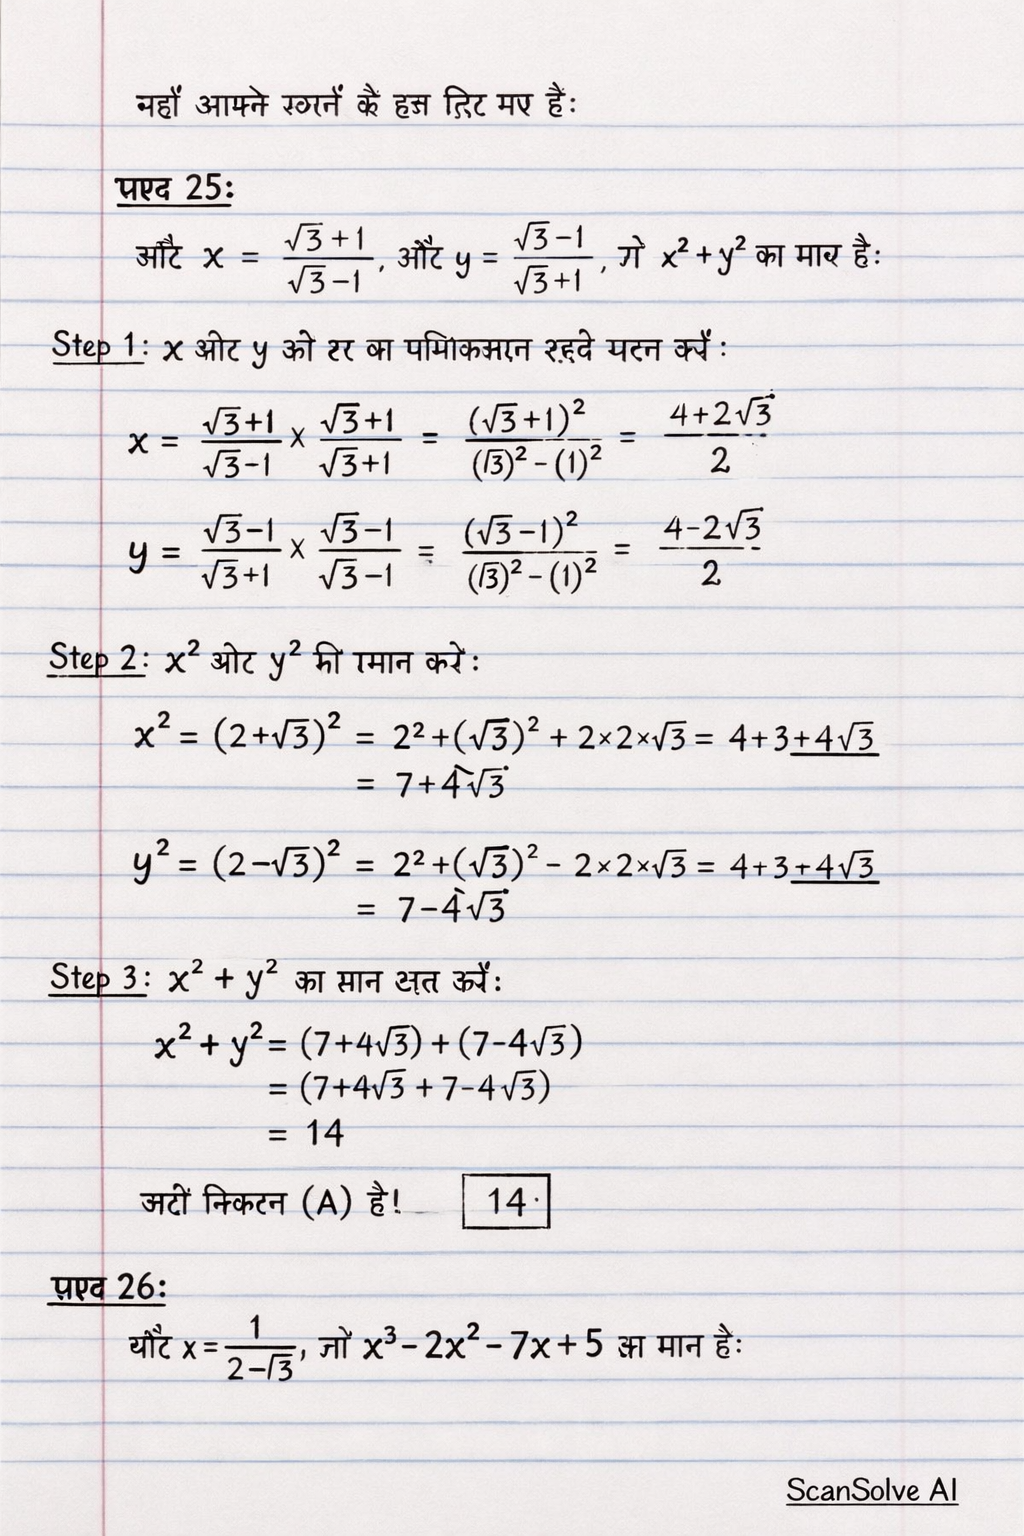 नहाँ आपने स्गनें के हस दिट मए है:
प्रएद 25:
औट x = √3+1 / √3−1, औट y = √3−1 / √3+1, गे x² + y² का मान है:
Step 1: x ओट y को टर का पमिकमान रहवे मटन करें:
x = √3+1 / √3−1 × √3+1 / √3+1 = (√3+1)² / (√3)² − (1)² = 4+2√3 / 2
y = √3−1 / √3+1 × √3−1 / √3−1 = (√3−1)² / (√3)² − (1)² = 4−2√3 / 2
Step 2: x² ओट y² की रमान करे:
x² = (2+√3)² = 2²+(√3)² + 2×2×√3 = 4+3+4√3
= 7+4√3
y² = (2−√3)² = 2²+(√3)² − 2×2×√3 = 4+3+4√3
= 7−4√3
Step 3: x² + y² का मान करें:
x² + y² = (7+4√3) + (7−4√3)
= (7+4√3 + 7−4√3)
= 14
निकटन (A) है! 14.
26:
x = 1 / 2−√3, जो x³ − 2x² − 7x + 5 का मान है:
ScanSolve AI